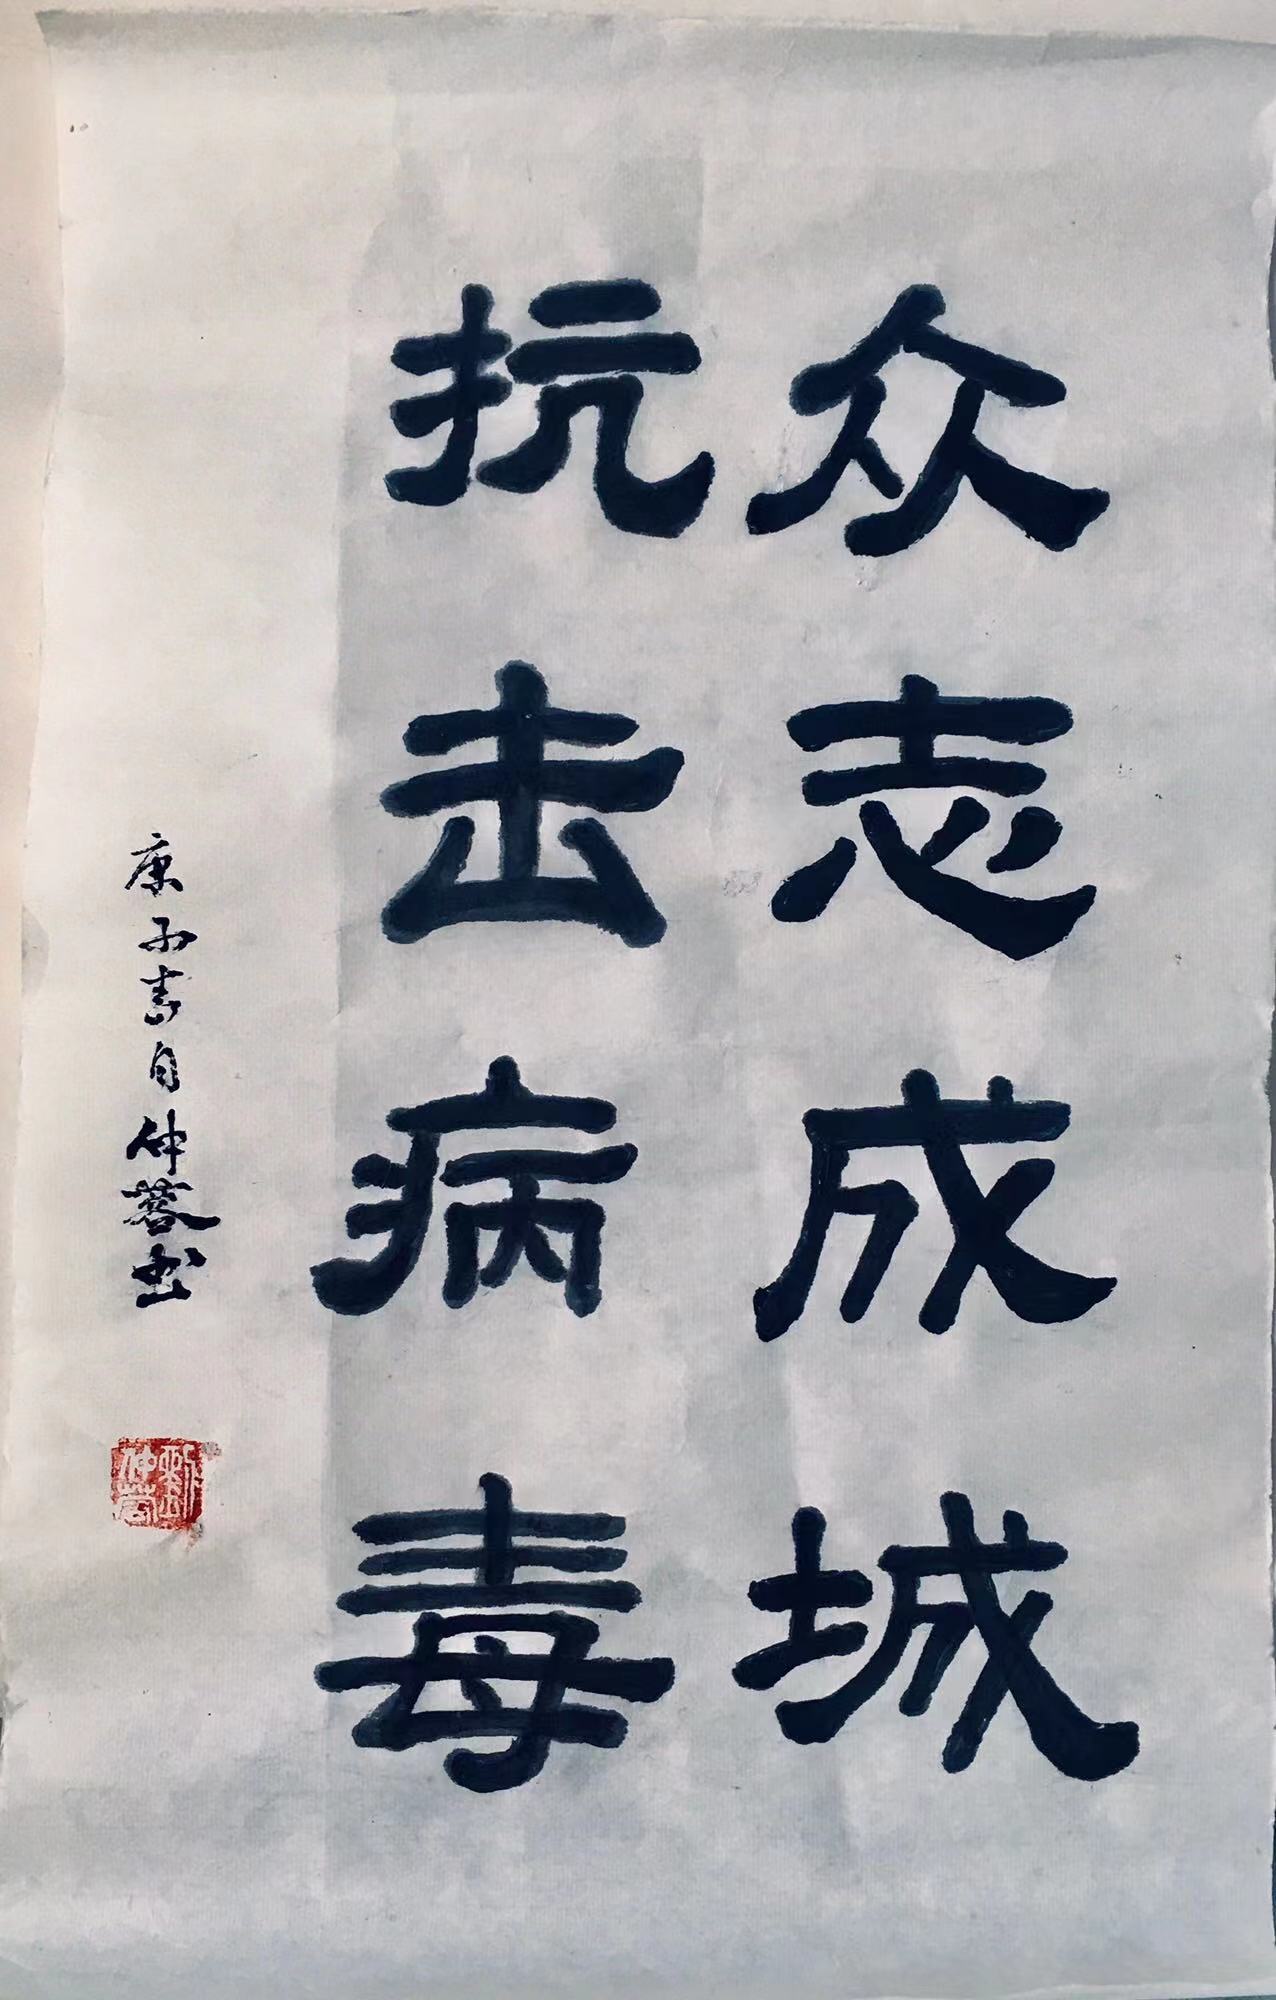 众志成城
抗击病毒
庚子春月仲蓉书
劉仲蓉